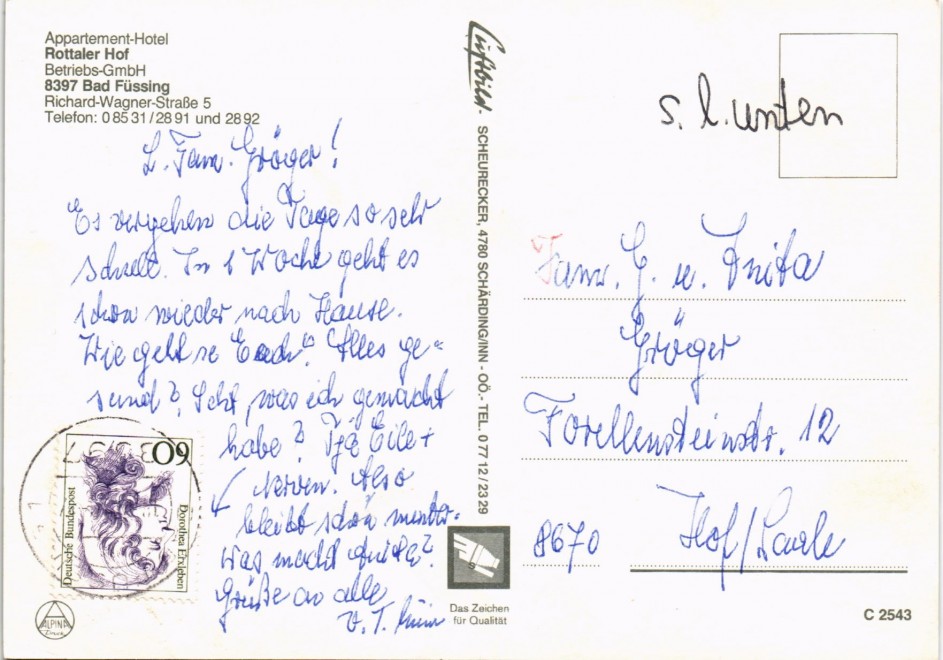 Appartement-Hotel
Rottaler Hof
Betriebs-GmbH
8397 Bad Füssing
Richard-Wagner-Straße 5
Telefon: 0 85 31 / 28 91 und 28 92
L. Fam. Gröger!
Es vergehen die Tage so sehr
schnell. In 1 Woche geht es
schon wieder nach Hause.
Wie geht es Euch? Alles ge=
sund? Seht, was ich gemacht
habe? Tja Eile +
Nerven. Also
bleibt schön munter.
Was macht Anita?
Grüße an alle
v. T.
60
Deutsche Bundespost
Dorothea Erxleben
ALPINA
Druck
Luftbild
SCHEURECKER, 4780 SCHÄRDING/INN - OÖ. - TEL. 0 77 12 / 23 29
Das Zeichen
für Qualität
s. l. unten
Fam. G. u. Anita
Gröger
Forellensteinstr. 12
8670 Hof/Saale
C 2543